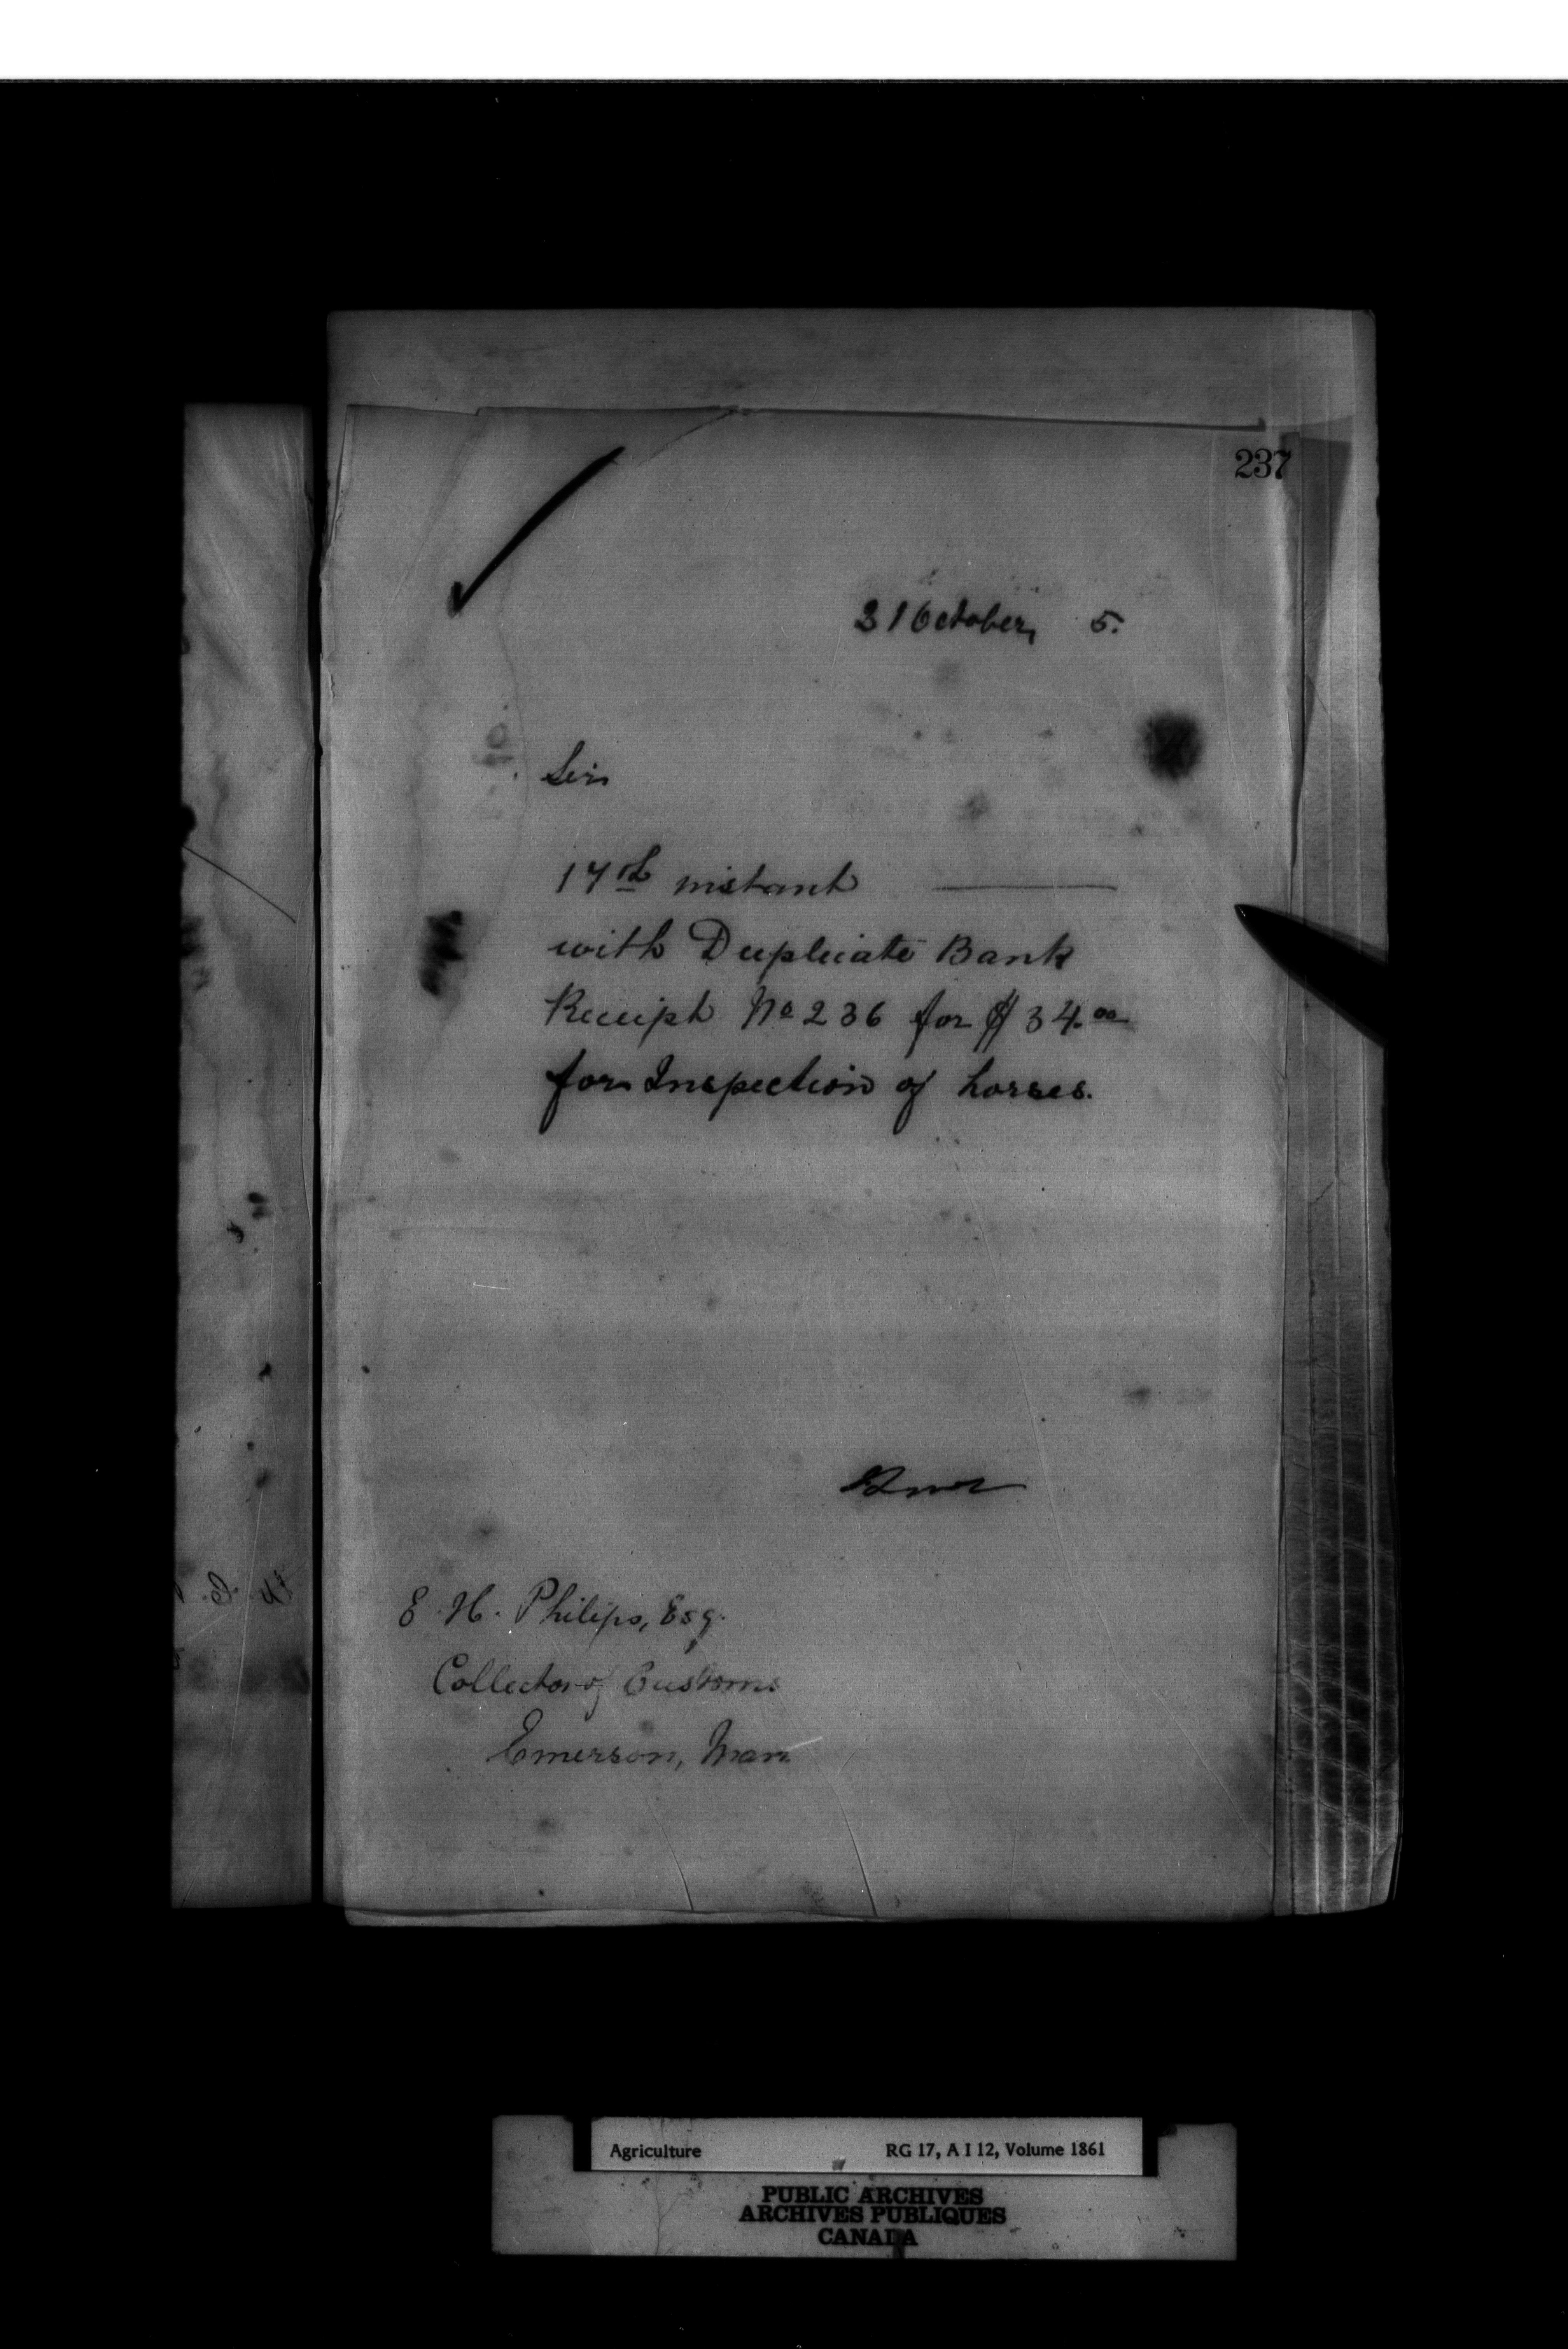 237
21 October, 5.
Sir
17th instant
with Duplicate Bank
Receipt No 236 for $34.00
for Inspection of horses.
E. H. Philips, Esq.
Collector of Customs
Emerson, Man
Agriculture RG 17, A I 12, Volume 1861
PUBLIC ARCHIVES
ARCHIVES PUBLIQUES
CANADA